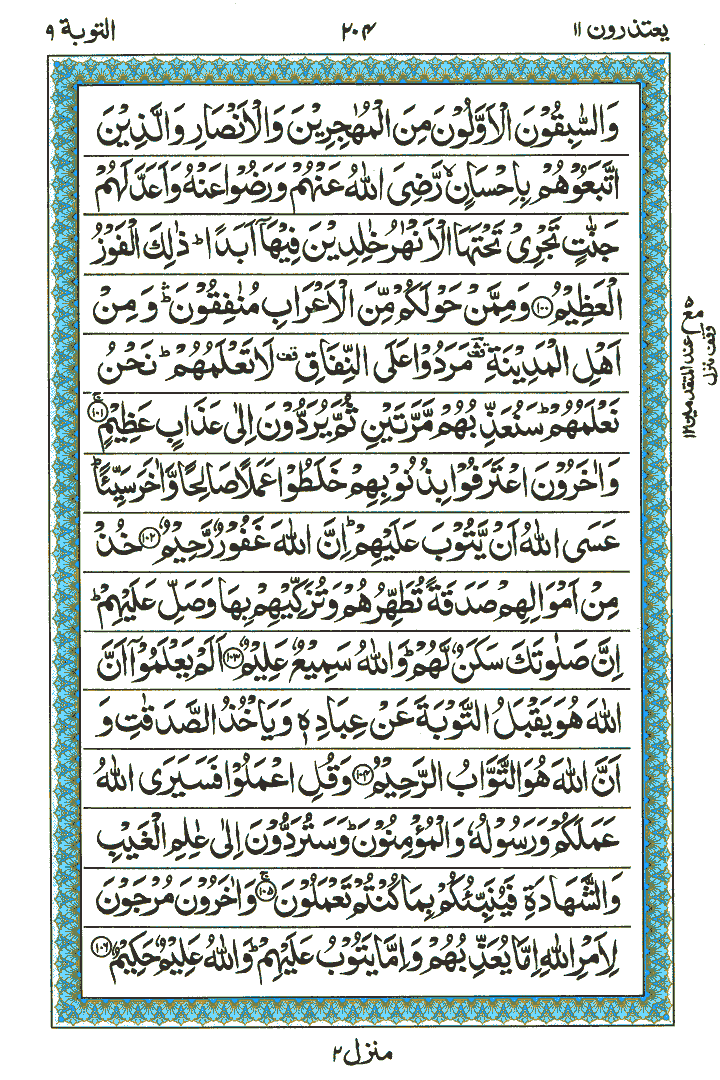 يعتذرون ١١ ٢٠٤ التوبة ٩
وَالسّٰبِقُوْنَ الْاَوَّلُوْنَ مِنَ الْمُهٰجِرِيْنَ وَالْاَنْصَارِ وَالَّذِيْنَ
اتَّبَعُوْهُمْ بِاِحْسَانٍ ۙ رَّضِيَ اللّٰهُ عَنْهُمْ وَرَضُوْا عَنْهُ وَاَعَدَّ لَهُمْ
جَنّٰتٍ تَجْرِيْ تَحْتَهَا الْاَنْهٰرُ خٰلِدِيْنَ فِيْهَاۤ اَبَدًا ؕ ذٰلِكَ الْفَوْزُ
الْعَظِيْمُ ﴿١٠٠﴾ وَمِمَّنْ حَوْلَكُمْ مِّنَ الْاَعْرَابِ مُنٰفِقُوْنَ ۛؕ وَمِنْ
اَهْلِ الْمَدِيْنَةِ ۛؔ مَرَدُوْا عَلَى النِّفَاقِ ۟ لَا تَعْلَمُهُمْ ؕ نَحْنُ
نَعْلَمُهُمْ ؕ سَنُعَذِّبُهُمْ مَّرَّتَيْنِ ثُمَّ يُرَدُّوْنَ اِلٰى عَذَابٍ عَظِيْمٍ ۚ﴿١٠١﴾
وَاٰخَرُوْنَ اعْتَرَفُوْا بِذُنُوْبِهِمْ خَلَطُوْا عَمَلًا صَالِحًا وَّاٰخَرَ سَيِّئًا ؕ
عَسَى اللّٰهُ اَنْ يَّتُوْبَ عَلَيْهِمْ ؕ اِنَّ اللّٰهَ غَفُوْرٌ رَّحِيْمٌ ﴿١٠٢﴾ خُذْ
مِنْ اَمْوَالِهِمْ صَدَقَةً تُطَهِّرُهُمْ وَتُزَكِّيْهِمْ بِهَا وَصَلِّ عَلَيْهِمْ ؕ
اِنَّ صَلٰوتَكَ سَكَنٌ لَّهُمْ ؕ وَاللّٰهُ سَمِيْعٌ عَلِيْمٌ ﴿١٠٣﴾ اَلَمْ يَعْلَمُوْۤا اَنَّ
اللّٰهَ هُوَ يَقْبَلُ التَّوْبَةَ عَنْ عِبَادِهٖ وَيَاْخُذُ الصَّدَقٰتِ وَ
اَنَّ اللّٰهَ هُوَ التَّوَّابُ الرَّحِيْمُ ﴿١٠٤﴾ وَقُلِ اعْمَلُوْا فَسَيَرَى اللّٰهُ
عَمَلَكُمْ وَرَسُوْلُهٗ وَالْمُؤْمِنُوْنَ ؕ وَسَتُرَدُّوْنَ اِلٰى عٰلِمِ الْغَيْبِ
وَالشَّهَادَةِ فَيُنَبِّئُكُمْ بِمَا كُنْتُمْ تَعْمَلُوْنَ ۚ﴿١٠٥﴾ وَاٰخَرُوْنَ مُرْجَوْنَ
لِاَمْرِ اللّٰهِ اِمَّا يُعَذِّبُهُمْ وَاِمَّا يَتُوْبُ عَلَيْهِمْ ؕ وَاللّٰهُ عَلِيْمٌ حَكِيْمٌ ﴿١٠٦﴾
مع عند المتقدمين ١٢
وقف منزل
منزل ٢